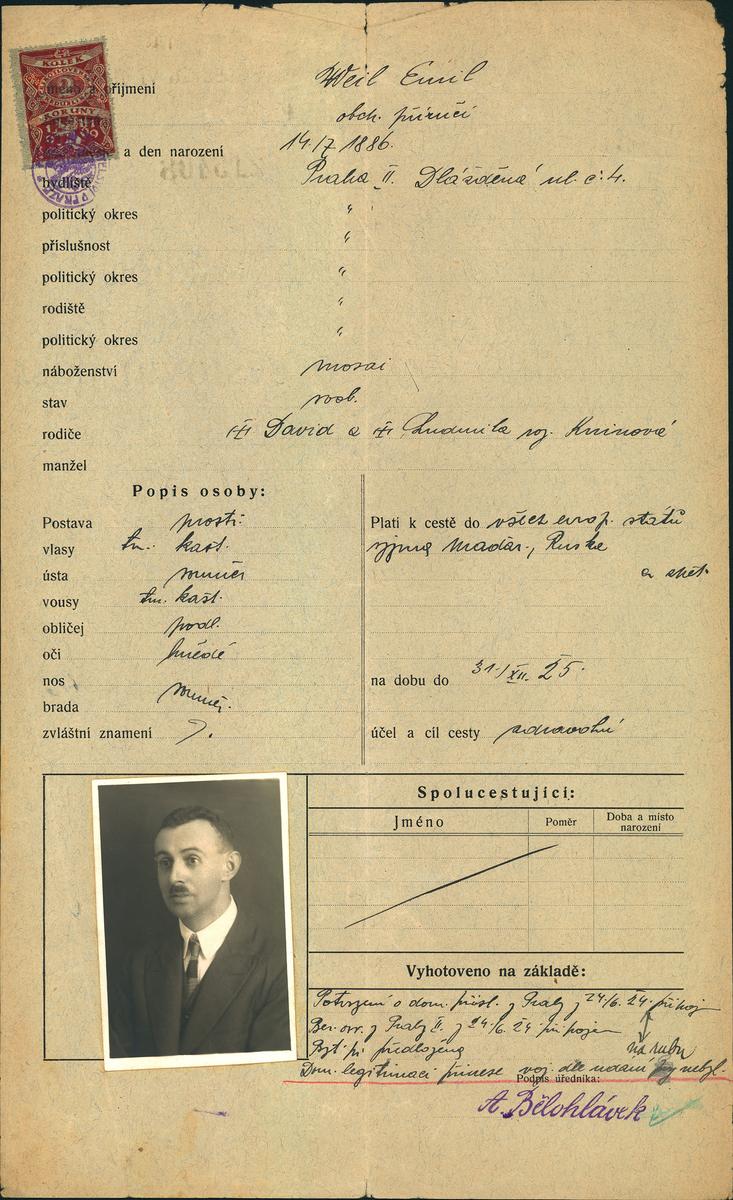 KOLEK
2
KORUNY
jméno a příjmení Weil Emil
obch. příručí
a den narození 14./7 1886.
bydliště Praha II. Dlážděná ul. č. 4.
politický okres "
příslušnost "
politický okres "
rodiště "
politický okres "
náboženství mosai
stav svob.
rodiče David a Ludmila roz.
manžel
Popis osoby:
Postava prostř.
vlasy tm. kašt.
ústa souměr
vousy tm. kašt.
obličej podl.
oči hnědé
nos
brada souměr.
zvláštní znamení
Platí k cestě do všech evrop. států
vyjma Maďar., Ruska
a zpět.
na dobu do 31./XII. 25.
účel a cíl cesty zdravotní
Spolucestující:
Jméno Poměr Doba a místo narození
Vyhotoveno na základě:
Potvrzení o dom. přísl. z Prahy z 24/6. 24. připoj
Ber. z Prahy II. z 24/6. 24 připojen
předložena na rubu
Dom. legitimaci přinese voj. dle udání nebyl.
Podpis úředníka:
A. Bělohlávek